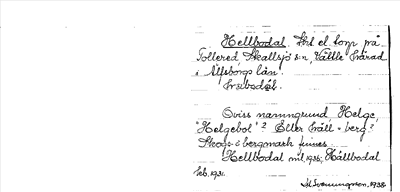 Hellbodal. Förr el torp på
Tollered Skallsjö s:n, Vättle härad
i Älfsborgs län.
Oviss namngrund, Helge,
"Helgebol"? Eller häll = berg?
Skogs- o bergmark finnes.
Hellbodal mtl 1936, Hällbodal
feb. 1931.
1938